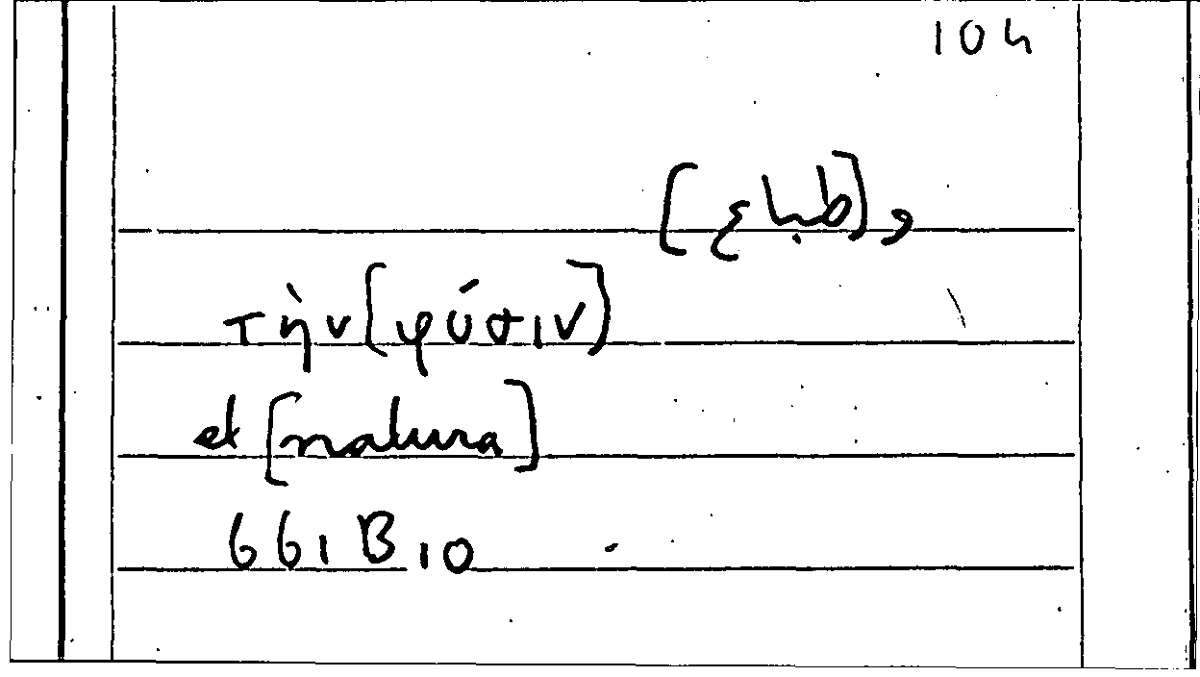 104
و[طباع]
τὴν [φύσιν]
et [natura]
661 B 10